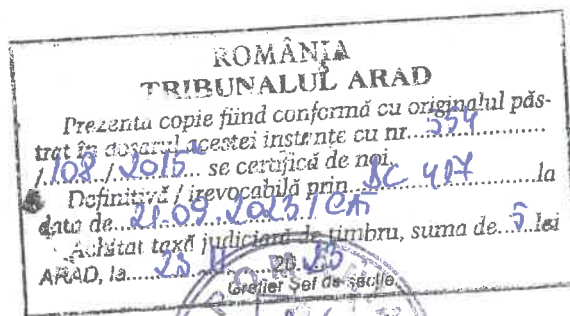 ROMÂNIA
TRIBUNALUL ARAD
Prezenta copie fiind conformă cu originalul păs-
trat în dosarul acestei instanțe cu nr....554..........
/.108./.2015.. se certifică de noi.
Definitivă / irevocabilă prin....DC 417............la
data de...21.09..2023 / CA
Achitat taxă judiciară de timbru, suma de..5.lei
ARAD, la......23.11.........20.23
Grefier Șef de secție